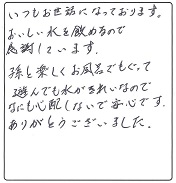 いつもお世話になっております。
おいしい水を飲めるので
感謝しています。
孫と楽しくお風呂でもぐって
遊んでも水がきれいなので
なにも心配しないで安心です。
ありがとうございました。